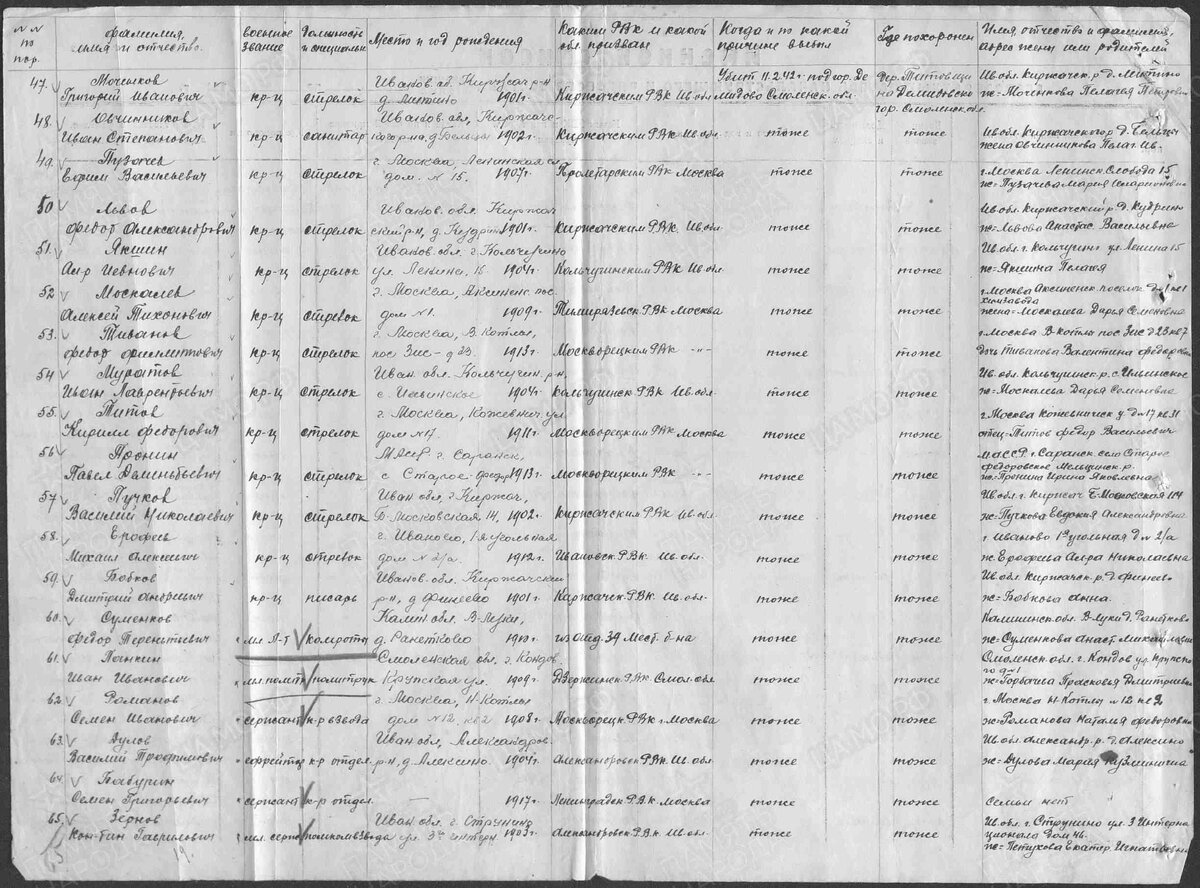 № № по пор.
фамилия, имя и отчество.
военное звание
Должность и специальн.
Место и год рождения
Каким РВК и какой обл. призван
Когда и по какой причине выбыл
Где похоронен
Имя, отчество и фамилия, адрес жены или родителей
47. Моченков Ив обл. Киржач р-н Убит 11.2.42г. под гор. Де Дер. Титовщи Ив обл. Киржачск. р. д.
Григорий Иванович кр-ц стрелок д. 1901г. Киржачским РВК Ив обл мидово Смоленск. обл. на Демидовско ж-Моченкова Пелагея
гор. Смоленск. обл.
48. Овчинников Ивановск. обл, Киржачс-
Иван Степанович кр-ц санитар кого р-на, д. 1902г. Киржачским РВК Ив обл. тоже тоже Ив обл. Киржачского р. д.
жена Овчинникова Пелаг. Ив.
49. Пузачев г. Москва, Ленинская сл
Ефим Васильевич кр-ц стрелок дом. N 15. 1907г. Пролетарским РВК Москва тоже тоже г. Москва Ленинск. Слобода 15
ж-Пузачева Мария
50 Львов Иванов. обл. Киржач Ив обл. Киржачский р. д.
Федор Александрович кр-ц стрелок ский р-н, д. 1901г. Киржачским РВК Ив. обл. тоже тоже ж-Львова Анастас. Васильевна
51. Якшин Ивановск. обл. г. Кольчугино Ив. обл. г. Кольчугино ул Ленина 15
кр-ц стрелок ул. Ленина, 1904г. Кольчугинским РВК Ив обл тоже тоже ж-Якшина Пелагея
52 Москалев г. Москва, Аксиненск. пос. г. Москва Аксиненск. поселок
Алексей Тихонович кр-ц стрелок дом N1. 1909г. Тимирязевск РВК Москва тоже тоже жена-Москалева Дарья Семеновна
53. Тиванов г. Москва, В. Котлы, г. Москва В-Котлы пос Зис д 23 кв 7
Федор Филиппович кр-ц стрелок пос Зис-д 23. 1913г. Москворецким РВК -"- тоже тоже дочь Тиванова Валентина Федоровна
54 Муратов Иван. обл. Кольчугин. р-н, Ив. обл. Кольчугинск. р. с. Ильинское
Иван Лаврентьевич кр-ц стрелок с. Ильинское 1904г. Кольчугинск РВК Ив. обл. тоже тоже ж-Москалева Дарья Семеновна
55. Титов г. Москва, Кожевнич. ул г. Москва Кожевническ у д N 17 кв 31
Кирилл Федорович кр-ц стрелок дом N 17. 1911г. Москворецким РВК Москва тоже тоже отец-Титов Федор Васильевич
56 Пронин МАСС г. Саранск, МАССР г. Саранск. село Старое
Федоровское р.
Павел кр-ц стрелок с Старое-Федор 1913г. Москворецким РВК -"- тоже тоже ж-Пронина Ирина Яковлевна
57 Пучков Иван обл. г Киржач, Ив обл. г. Киржач Б Московская 14
Василий Николаевич кр-ц стрелок Б-Московская 14, 1902г. Киржачским РВК Ив обл. тоже тоже ж-Пучкова Евдокия Александровна
58. Ерофеев г. Иваново, 1-я угольная г. Иваново 1я угольная д N 2/а
Михаил Алексеевич кр-ц стрелок дом N 2/а. 1912г. Ивановск. РВК Ив. обл. тоже тоже ж Ерофеева Николаевна
59. Бобков Иванов. обл. Киржачский Ив обл. Киржачск. р. д Финеево
Дмитрий Андреевич кр-ц писарь р-н, д Финеево 1901г. Киржачск. РВК Ив. обл. тоже тоже ж-Бобкова Анна.
60. Суменков Калин обл. В-Луки, Калининск обл. В Луки д.
Федор Терентьевич мл л-т комроты д. 1910г. из 39 Мест. б-на тоже тоже ж-Суменкова Анаст. Михайловна
61. Панкин Смоленская обл. г. Кондов. Смоленск. обл. г. Кондов ул. Крупской
Иван Иванович мл. политр политрук Крупская ул. 1909г. Дзержинск. РВК Смол. обл тоже тоже ж-Горбачева Прасковья Дмитриевна
62. Романов г. Москва, Н-Котлы г. Москва Н-Котлы N 12 кв 2
Семен Иванович сержант к-р взвода дом N 12, кв 2 1908г. Москворецк. РВК г Москва тоже тоже ж-Романова Наталья Федоровна
63. Аулов Иван обл, Александров. Ив обл. Александр. р. д. Алексино
Василий Трофимович ефрейтор к-р отдел. р-н, д. Алексино 1904г. Александровск РВК. Ив. обл тоже тоже ж-Аулова Мария Кузьминична
64. Бабурин
Семен Григорьевич сержант к-р отдел. — 1917г. Ленинградск РВК Москва тоже тоже Семьи нет
65. Зернов Иван обл. г Струнино Ив обл. г. Струнино ул. 3 Интерна
ционала Дом 46.
Кон-тин Гаврилович мл. серж помкомвзвода ул. 3го интерн 1903г. Александровск РВК Ив обл. тоже тоже ж-Петухова Екатер. Игнатьевна